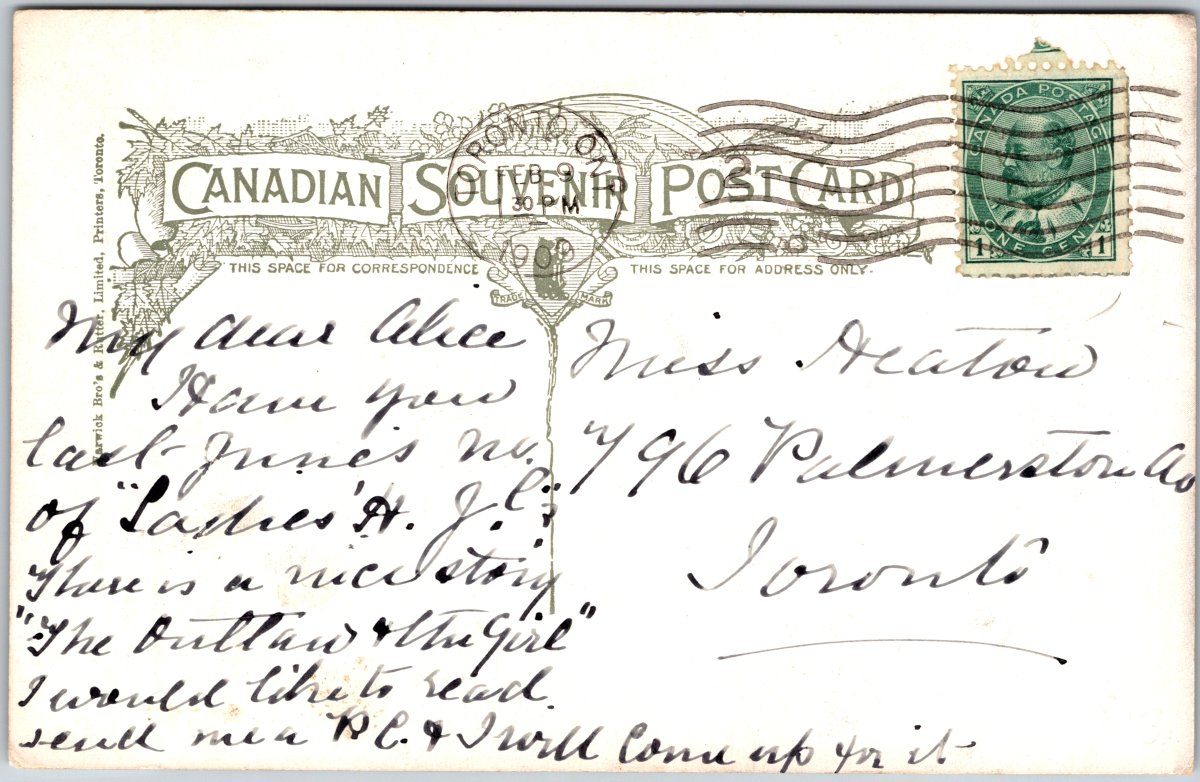 CANADIAN SOUVENIR POST CARD
TORONTO, ONT
FEB 9
30 PM
1908
CANADA POSTAGE
1 ONE CENT 1
THIS SPACE FOR CORRESPONDENCE
THIS SPACE FOR ADDRESS ONLY.
TRADE MARK
Warwick Bro's & Rutter, Limited, Printers, Toronto.
My dear Alice
Have you
last June's no.
of "Ladies' H. J."?
There is a nice story
"The Outlaw & the Girl"
I would like to read.
send me a P.C. & I will come up for it
Miss Heaton
796 Palmerston Av
Toronto